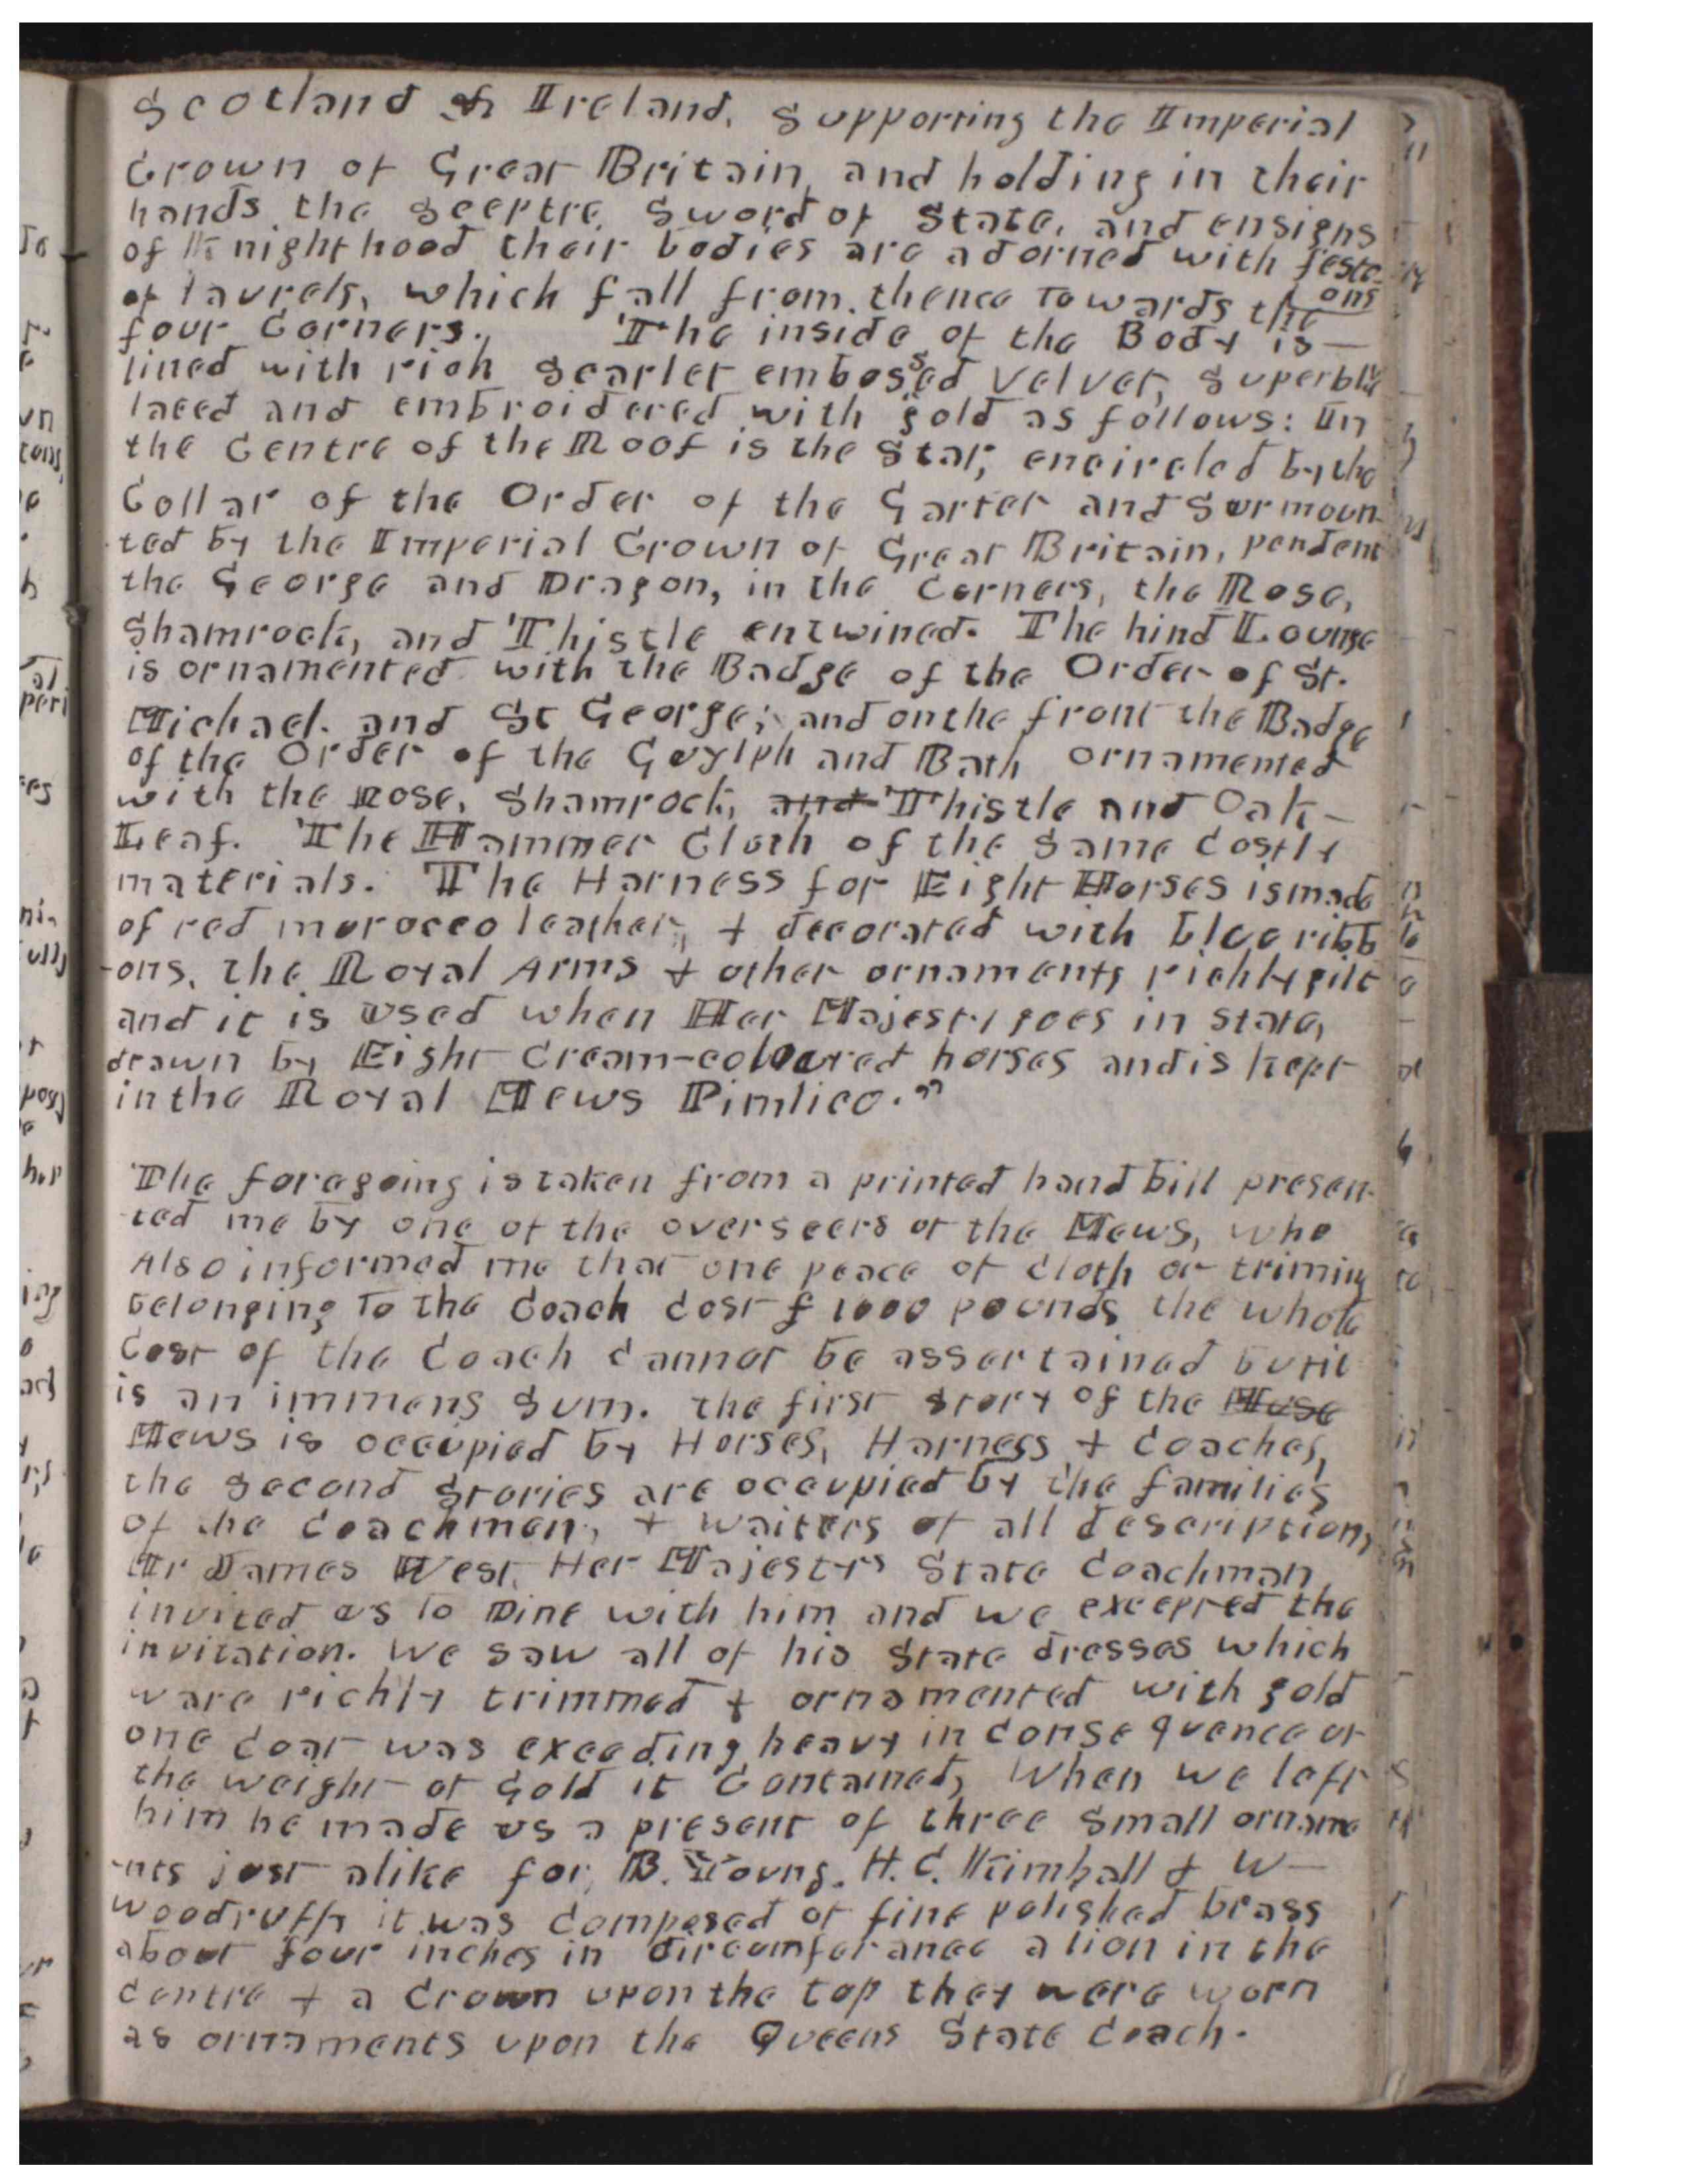 Scotland & Ireland, Supporting the Imperial
Crown of Great Britain, and holding in their
hands the Sceptre, Sword of State, and ensigns
of Knighthood their bodies are adorned with festo-
ons
of laurels, which fall from thence towards the
four Corners. The inside of the Body is —
lined with rich Scarlet embossed Velvet, Superbly
laced and embroidered with gold as follows: In
the Centre of the Roof is the Star, encircled by the
Collar of the Order of the Garter and Surmoun-
ted by the Imperial Crown of Great Britain, pendent
the George and Dragon, in the Corners, the Rose,
Shamrock, and Thistle entwined. The hind Lounge
is ornamented with the Badge of the Order of St.
Michael and St George; and on the front the Badge
of the Order of the Guylph and Bath ornamented
with the Rose, Shamrock, and Thistle and Oak-
Leaf. The Hammer Cloth of the Same Costly
materials. The Harness for Eight Horses is made
of red morocco leather, + decorated with blue ribb
-ons, the Royal Arms + other ornaments richly gilt
and it is used when Her Majesty goes in state,
drawn by Eight Cream-coloured horses and is kept
in the Royal Mews Pimlico."
The foregoing is taken from a printed hand bill presen-
-ted me by one of the overseers of the Mews, who
Also informed me that one peace of cloth or triming
belonging to the Coach Cost £ 1000 pounds the whole
Cost of the Coach Cannot be assertained but it
is an immens Sum. the first story of the Muse
Mews is occupied by Horses, Harness + Coaches,
the Second Stories are occupied by the families
of the Coachmen, + waiters of all description,
Mr James West, Her Majesty's State Coachman
invited us to Dine with him and we excepted the
invitation. We saw all of his State dresses which
ware richly trimmed + ornamented with gold
one Coat was exceding heavy in Consequence of
the weight of Gold it Contained, When we left
him he made us a present of three Small orname
-nts just alike for B. Young, H. C. Kimball + W—
Woodruff, it was Composed of fine polished brass
about four inches in Circumferance a lion in the
Centre + a Crown upon the top they were worn
as ornaments upon the Queens State Coach.